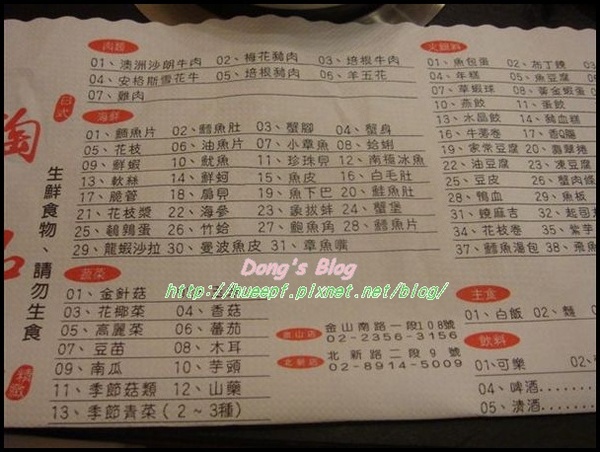 肉類
01、澳洲沙朗牛肉 02、梅花豬肉 03、培根牛肉
04、安格斯雪花牛 05、培根豬肉 06、羊五花
07、雞肉
海鮮
01、鯛魚片 02、鱈魚肚 03、蟹腳 04、蟹身
05、花枝 06、油魚片 07、小章魚 08、蛤蜊
09、鮮蝦 10、魷魚 11、珍珠貝 12、南極冰魚
13、軟絲 14、鮮蚵 15、魚皮 16、白毛肚
17、脆管 18、扇貝 19、魚下巴 20、鮭魚肚
21、花枝漿 22、海參 23、象拔蚌 24、蟹堡
25、鵪鶉蛋 26、竹蛤 27、鮑魚角 28、鱈魚片
29、龍蝦沙拉 30、愛波魚皮 31、章魚嘴
蔬菜
01、金針菇
03、花椰菜 04、香菇
05、高麗菜 06、蕃茄
07、豆苗 08、木耳
09、南瓜 10、芋頭
11、季節菇類 12、山藥
13、季節青菜(2~3種)
火鍋料
01、魚包蛋 02、布丁餃
04、年糕 05、魚豆腐
07、草蝦球 08、黃金蝦蛋
10、燕餃 11、蛋餃
13、水晶餃 14、豬血糕
16、牛蒡卷 17、香Q腸
19、家常豆腐 20、翡翠捲
22、油豆腐 23、凍豆腐
25、豆皮 26、蟹肉條
28、鴨血 29、魚板
31、燒麻吉 32、起司
34、花枝卷 35、紫芋
37、鱈魚湯包 38、飛魚
主食
01、白飯 02、麵
飲料
01、可樂
04、啤酒
05、清酒
金山店 金山南路一段108號
02-2356-3156
北新店 北新路二段9號
02-8914-5009
日式
生鮮食物、請勿生食
精緻
Dong's Blog
http://hueepf.pixnet.net/blog/